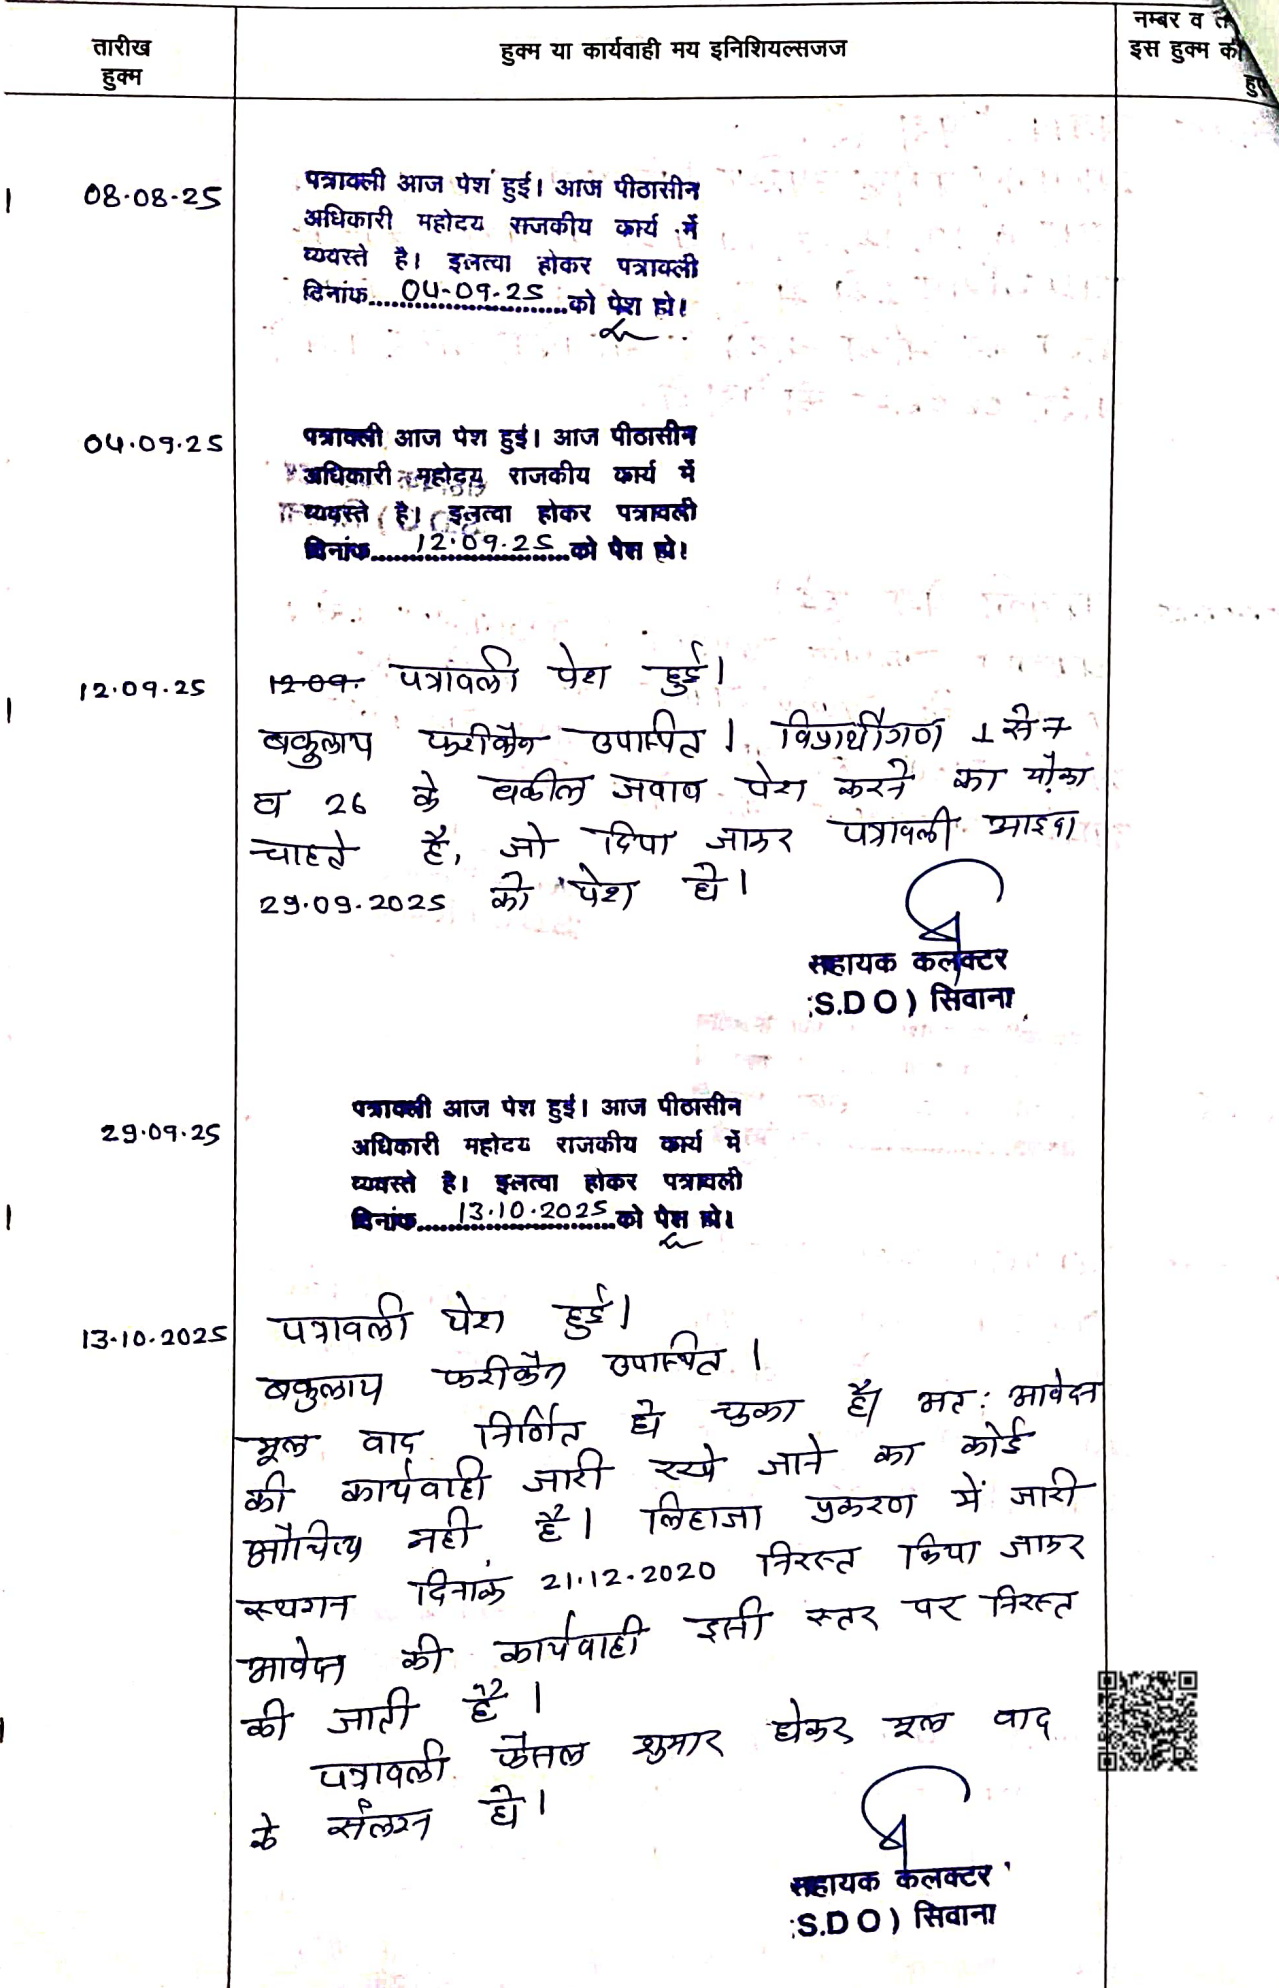 तारीख
हुक्म
हुक्म या कार्यवाही मय इनिशियल्सजज
नम्बर व
इस हुक्म की
08.08.25
पत्रावली आज पेश हुई। आज पीठासीन
अधिकारी महोदय राजकीय कार्य में
व्यवस्ते है। इलत्वा होकर पत्रावली
दिनांक 04-09-25 को पेश हो।
04.09.25
पत्रावली आज पेश हुई। आज पीठासीन
अधिकारी महोदय राजकीय कार्य में
व्यवस्ते है। इलत्वा होकर पत्रावली
दिनांक 12.09.25 को पेश हो।
12.09.25
12.09. पत्रावली पेश हुई।
वकुलाय फरीकैन उपस्थित। विप्रार्थीगण 1 से 7
व 26 के वकील जवाब पेश करने का मौका
चाहते है, जो दिया जाकर पत्रावली आइंदा
29.09.2025 को पेश हो।
सहायक कलेक्टर
S.D O) सिवाना
29.09.25
पत्रावली आज पेश हुई। आज पीठासीन
अधिकारी महोदय राजकीय कार्य में
व्यवस्ते है। इलत्वा होकर पत्रावली
दिनांक 13.10.2025 को पेश हो।
13.10.2025
पत्रावली पेश हुई।
वकुलाय फरीकैन उपस्थित।
मूल वाद निर्णित हो चुका है। अत: आवेदन
की कार्यवाही जारी रखे जाने का कोई
औचित्य नही है। लिहाजा प्रकरण में जारी
स्थगन दिनांक 21.12.2020 निरस्त किया जाकर
आवेदन की कार्यवाही इसी स्तर पर निरस्त
की जाती है।
पत्रावली फैसल शुमार होकर मूल वाद
के संलग्न हो।
सहायक कलक्टर
S.D O) सिवाना